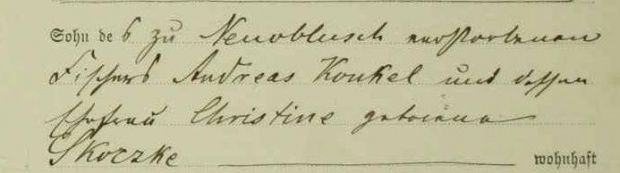 Sohn des zu Neuoblusch verstorbenen
Fischers Andreas Konkel und dessen
Ehefrau Christine geborene
Skoczke wohnhaft